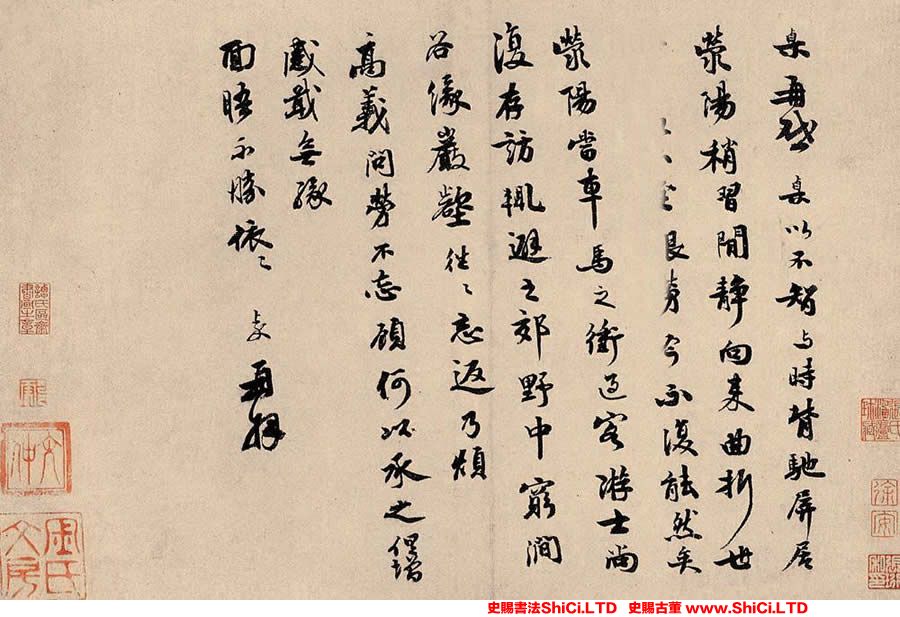 再啓 以不智与時背馳屏居
滎陽稍習閒靜向来曲折世
艮 今不復能然矣
滎陽當車馬之衝過客游士尚
復存訪輒避之郊野中窮澗
谷縁巖壑往〻忘返乃煩
高義問勞不忘顧何以承之但增
感戢無
面晤不勝依〻 再拜
史賜書法ShiCi.LTD 史賜古董 www.ShiCi.LTD